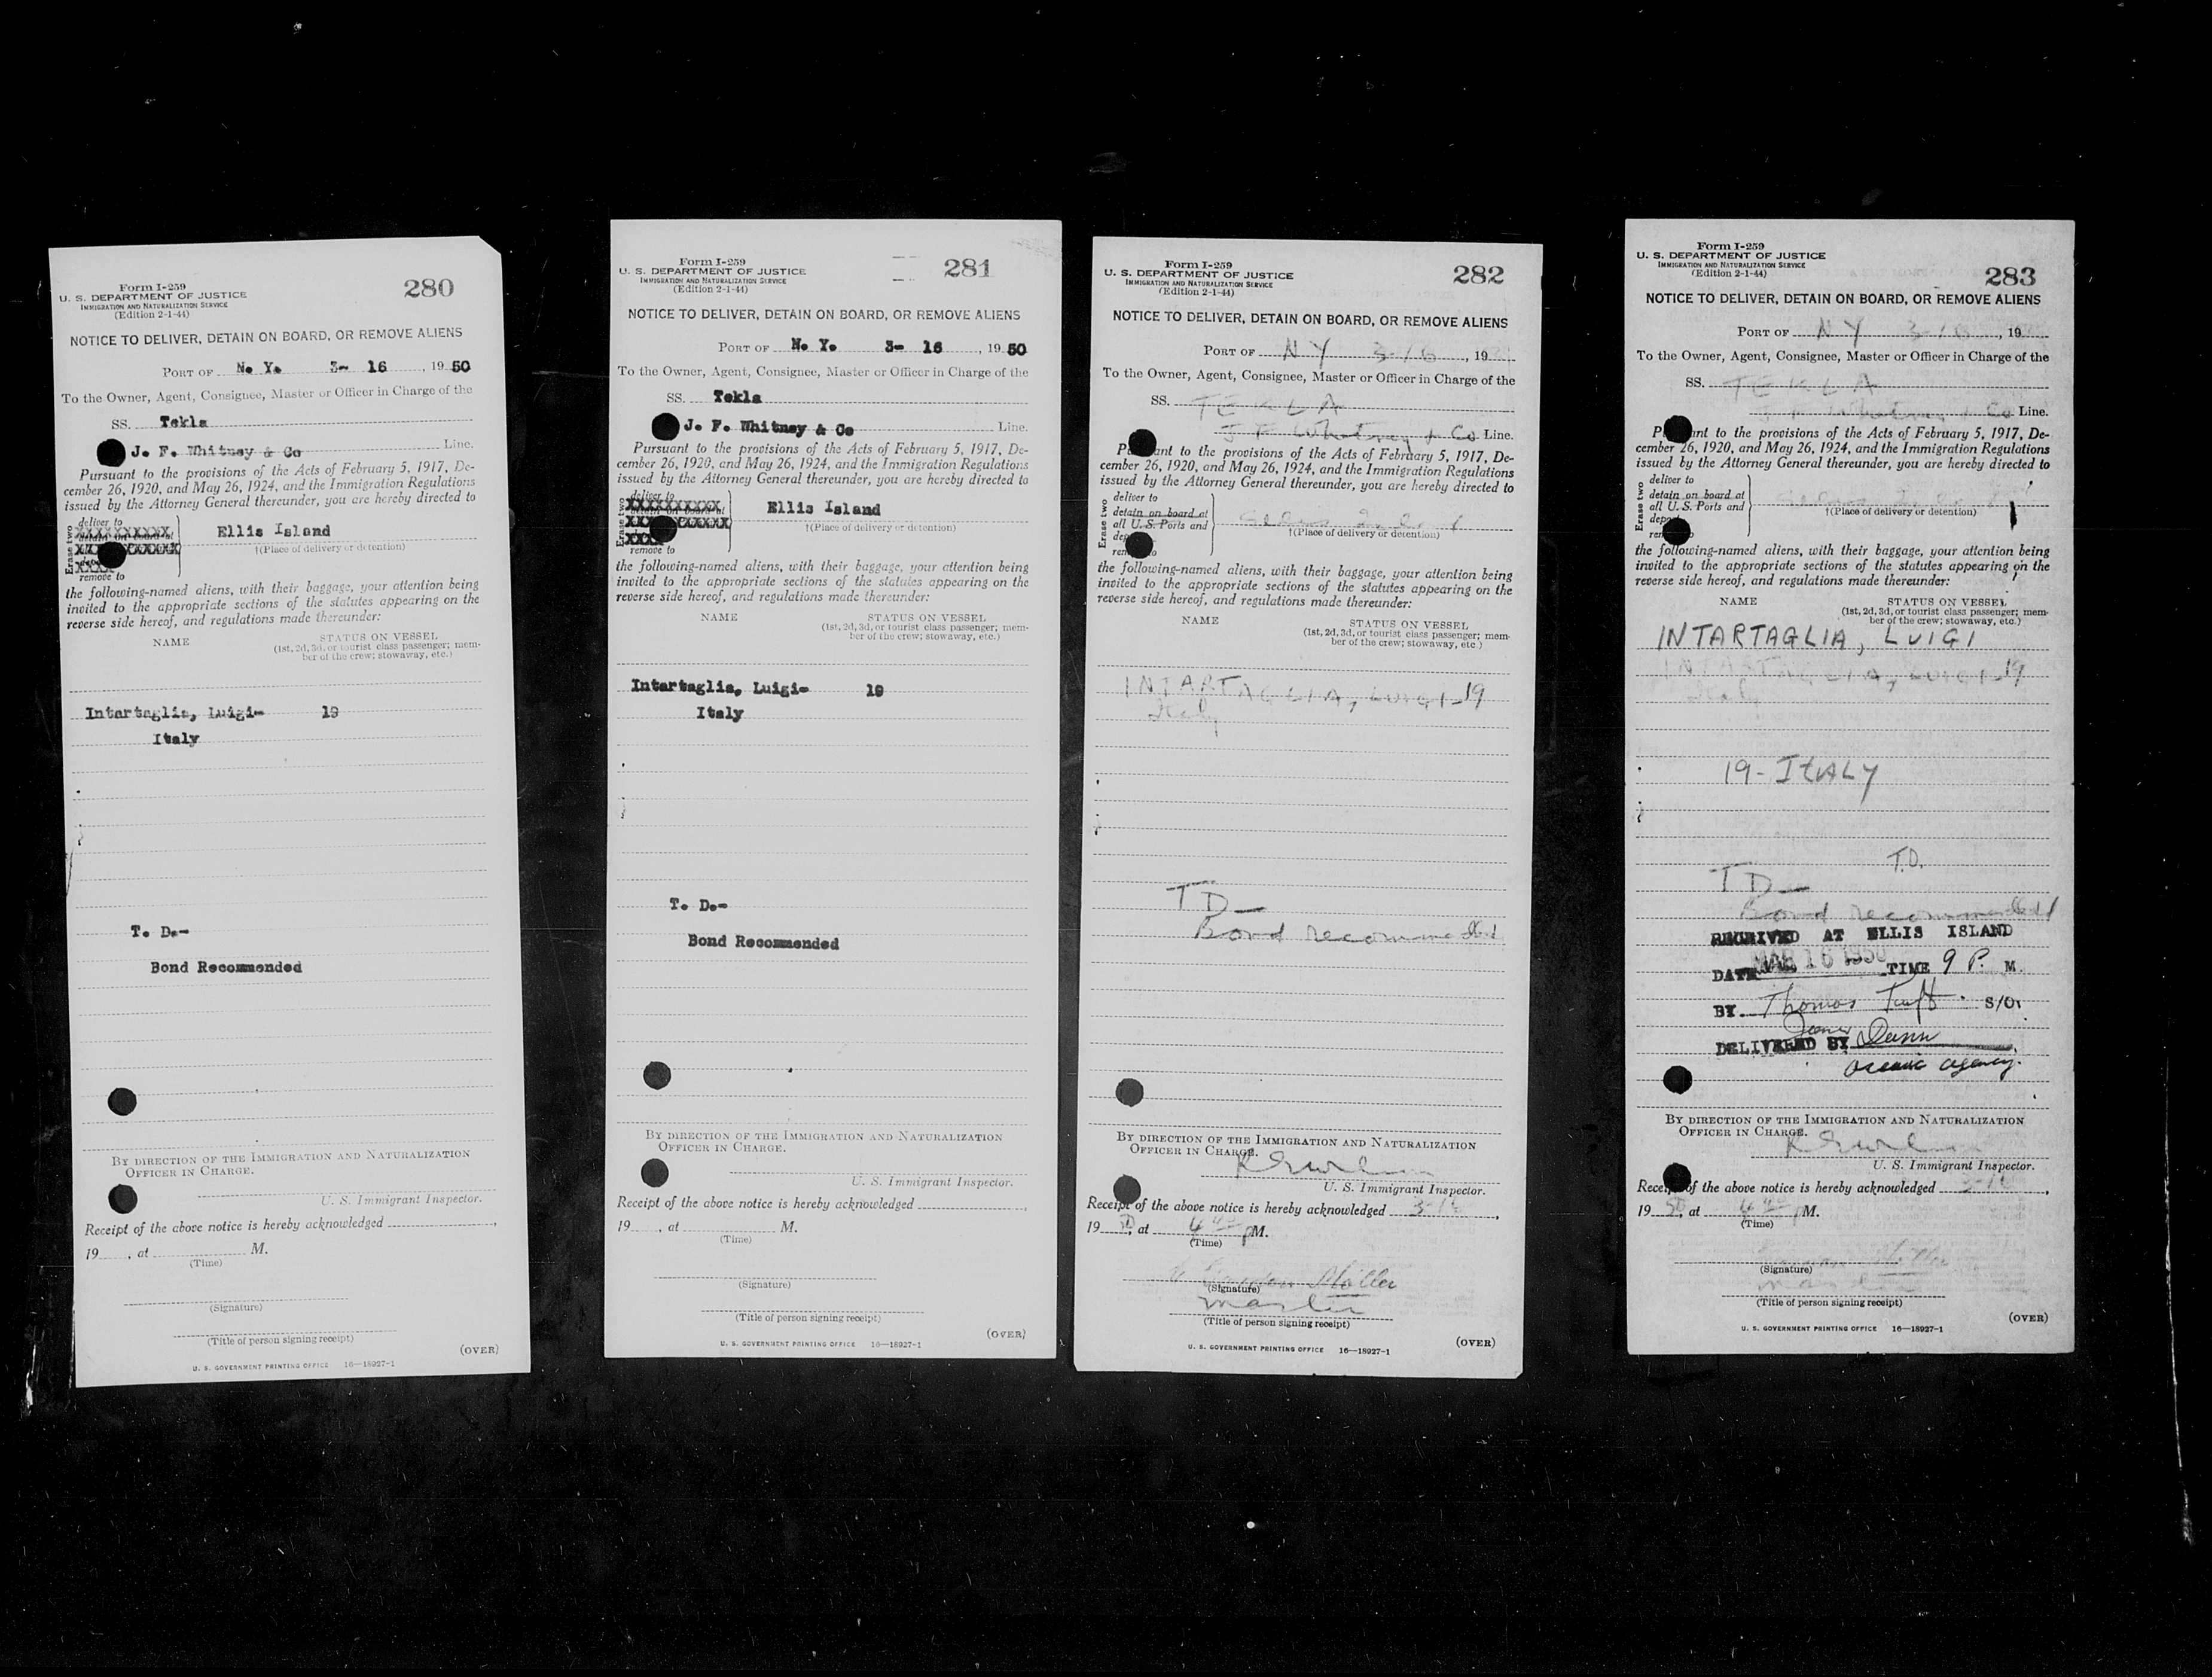 Form I-259
U. S. DEPARTMENT OF JUSTICE
IMMIGRATION AND NATURALIZATION SERVICE
(Edition 2-1-44)
280
NOTICE TO DELIVER, DETAIN ON BOARD, OR REMOVE ALIENS
PORT OF N. Y. 3- 16, 19 50
To the Owner, Agent, Consignee, Master or Officer in Charge of the
SS. Tekla
J. F. Whitney & Co Line.
Pursuant to the provisions of the Acts of February 5, 1917, De-
cember 26, 1920, and May 26, 1924, and the Immigration Regulations
issued by the Attorney General thereunder, you are hereby directed to
Erase two
deliver to
detain on board at
remove to
Ellis Island
†(Place of delivery or detention)
the following-named aliens, with their baggage, your attention being
invited to the appropriate sections of the statutes appearing on the
reverse side hereof, and regulations made thereunder:
NAME STATUS ON VESSEL
(1st, 2d, 3d, or tourist class passenger; mem-
ber of the crew; stowaway, etc.)
Intartaglia, Luigi- 19
Italy
T. D.-
Bond Recommended
BY DIRECTION OF THE IMMIGRATION AND NATURALIZATION
OFFICER IN CHARGE.
U. S. Immigrant Inspector.
Receipt of the above notice is hereby acknowledged ,
19 , at M.
(Time)
(Signature)
(Title of person signing receipt)
(OVER)
U. S. GOVERNMENT PRINTING OFFICE 16—18927-1
Form I-259
U. S. DEPARTMENT OF JUSTICE
IMMIGRATION AND NATURALIZATION SERVICE
(Edition 2-1-44)
281
NOTICE TO DELIVER, DETAIN ON BOARD, OR REMOVE ALIENS
PORT OF N. Y. 3- 16, 19 50
To the Owner, Agent, Consignee, Master or Officer in Charge of the
SS. Tekla
J. F. Whitney & Co Line.
Pursuant to the provisions of the Acts of February 5, 1917, De-
cember 26, 1920, and May 26, 1924, and the Immigration Regulations
issued by the Attorney General thereunder, you are hereby directed to
Erase two
deliver to
detain on board at
remove to
Ellis Island
†(Place of delivery or detention)
the following-named aliens, with their baggage, your attention being
invited to the appropriate sections of the statutes appearing on the
reverse side hereof, and regulations made thereunder:
NAME STATUS ON VESSEL
(1st, 2d, 3d, or tourist class passenger; mem-
ber of the crew; stowaway, etc.)
Intartaglia, Luigi- 19
Italy
T. D.-
Bond Recommended
BY DIRECTION OF THE IMMIGRATION AND NATURALIZATION
OFFICER IN CHARGE.
U. S. Immigrant Inspector.
Receipt of the above notice is hereby acknowledged ,
19 , at M.
(Time)
(Signature)
(Title of person signing receipt)
(OVER)
U. S. GOVERNMENT PRINTING OFFICE 16—18927-1
Form I-259
U. S. DEPARTMENT OF JUSTICE
IMMIGRATION AND NATURALIZATION SERVICE
(Edition 2-1-44)
282
NOTICE TO DELIVER, DETAIN ON BOARD, OR REMOVE ALIENS
PORT OF N Y 3-16, 19
To the Owner, Agent, Consignee, Master or Officer in Charge of the
SS. TEKLA
J F Whitney + Co Line.
Pursuant to the provisions of the Acts of February 5, 1917, De-
cember 26, 1920, and May 26, 1924, and the Immigration Regulations
issued by the Attorney General thereunder, you are hereby directed to
Erase two
deliver to
detain on board at
all U. S. Ports and
†(Place of delivery or detention)
the following-named aliens, with their baggage, your attention being
invited to the appropriate sections of the statutes appearing on the
reverse side hereof, and regulations made thereunder:
NAME STATUS ON VESSEL
(1st, 2d, 3d, or tourist class passenger; mem-
ber of the crew; stowaway, etc.)
INTARTAGLIA, LUIGI - 19
Italy
T D —
Bond recommended
BY DIRECTION OF THE IMMIGRATION AND NATURALIZATION
OFFICER IN CHARGE.
U. S. Immigrant Inspector.
Receipt of the above notice is hereby acknowledged 3-16,
19 50, at PM.
(Time)
(Signature)
master
(Title of person signing receipt)
(OVER)
U. S. GOVERNMENT PRINTING OFFICE 16—18927-1
Form I-259
U. S. DEPARTMENT OF JUSTICE
IMMIGRATION AND NATURALIZATION SERVICE
(Edition 2-1-44)
283
NOTICE TO DELIVER, DETAIN ON BOARD, OR REMOVE ALIENS
PORT OF N Y 3-16, 19
To the Owner, Agent, Consignee, Master or Officer in Charge of the
SS. TEKLA
J F Whitney + Co Line.
Pursuant to the provisions of the Acts of February 5, 1917, De-
cember 26, 1920, and May 26, 1924, and the Immigration Regulations
issued by the Attorney General thereunder, you are hereby directed to
Erase two
deliver to
detain on board at
all U. S. Ports and
†(Place of delivery or detention)
the following-named aliens, with their baggage, your attention being
invited to the appropriate sections of the statutes appearing on the
reverse side hereof, and regulations made thereunder:
NAME STATUS ON VESSEL
(1st, 2d, 3d, or tourist class passenger; mem-
ber of the crew; stowaway, etc.)
INTARTAGLIA, LUIGI
INTARTAGLIA, LUIGI - 19
Italy
19 - ITALY
T.D.
T D —
Bond recommended
RECEIVED AT ELLIS ISLAND
DATE MAR 16 1950 TIME 9 P. M.
BY Thomas Tuft. S/O
DELIVERED BY Dunn
Oceanic agency.
BY DIRECTION OF THE IMMIGRATION AND NATURALIZATION
OFFICER IN CHARGE.
U. S. Immigrant Inspector.
Receipt of the above notice is hereby acknowledged 3-16,
19 50, at PM.
(Time)
(Signature)
(Title of person signing receipt)
(OVER)
U. S. GOVERNMENT PRINTING OFFICE 16—18927-1